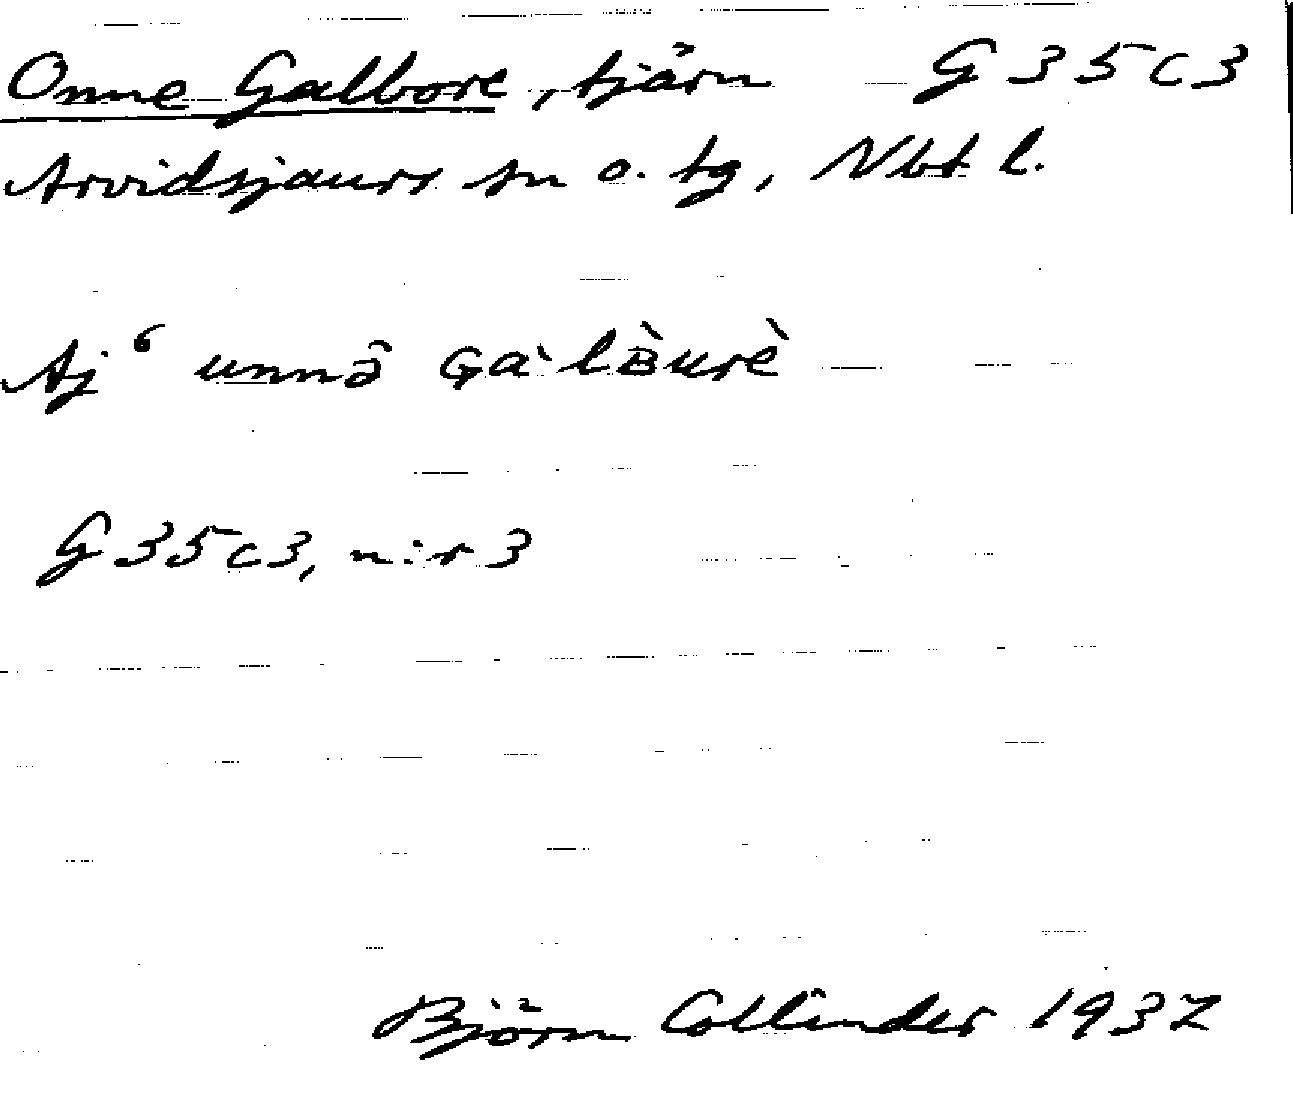 Onne Galbore, tjärn G 35 c 3
Arvidsjaurs sn o. tg, Nbt l.
Aj⁶ unnâ Gàlʙ̀urè
G 35 c 3, n:r 3
Björn Collinder 1937